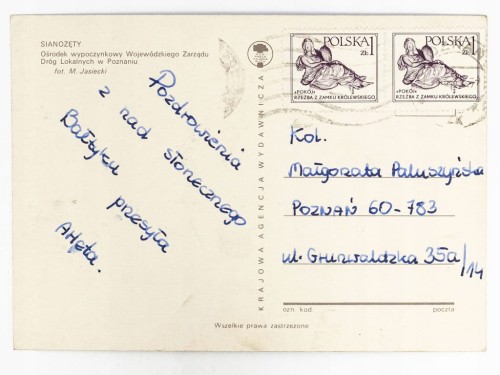 SIANOŻĘTY
Ośrodek wypoczynkowy Wojewódzkiego Zarządu
Dróg Lokalnych w Poznaniu
fot. M. Jasiecki
Pozdrowienia
z nad słonecznego
Bałtyku przesyła
Aneta.
KRAJOWA AGENCJA WYDAWNICZA
POLSKA 1
ZŁ
«POKÓJ»
RZEŹBA Z ZAMKU KRÓLEWSKIEGO
POLSKA 1
ZŁ
«POKÓJ»
RZEŹBA Z ZAMKU KRÓLEWSKIEGO
Kol.
Małgorzata Paluszyńska
POZNAŃ 60-783
ul. Grunwaldzka 35a/14
ozn. kod. poczta
Wszelkie prawa zastrzeżone